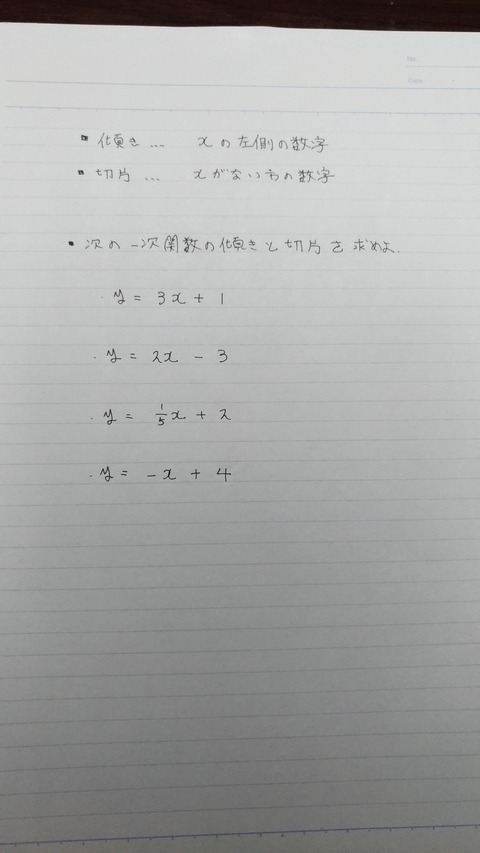 No.
Date
▪ 傾き … xの左側の数字
▪ 切片 … xがない方の数字
▪ 次の一次関数の傾きと切片を求めよ.
・y = 3x + 1
・y = 2x - 3
・y = 1/5 x + 2
・y = -x + 4